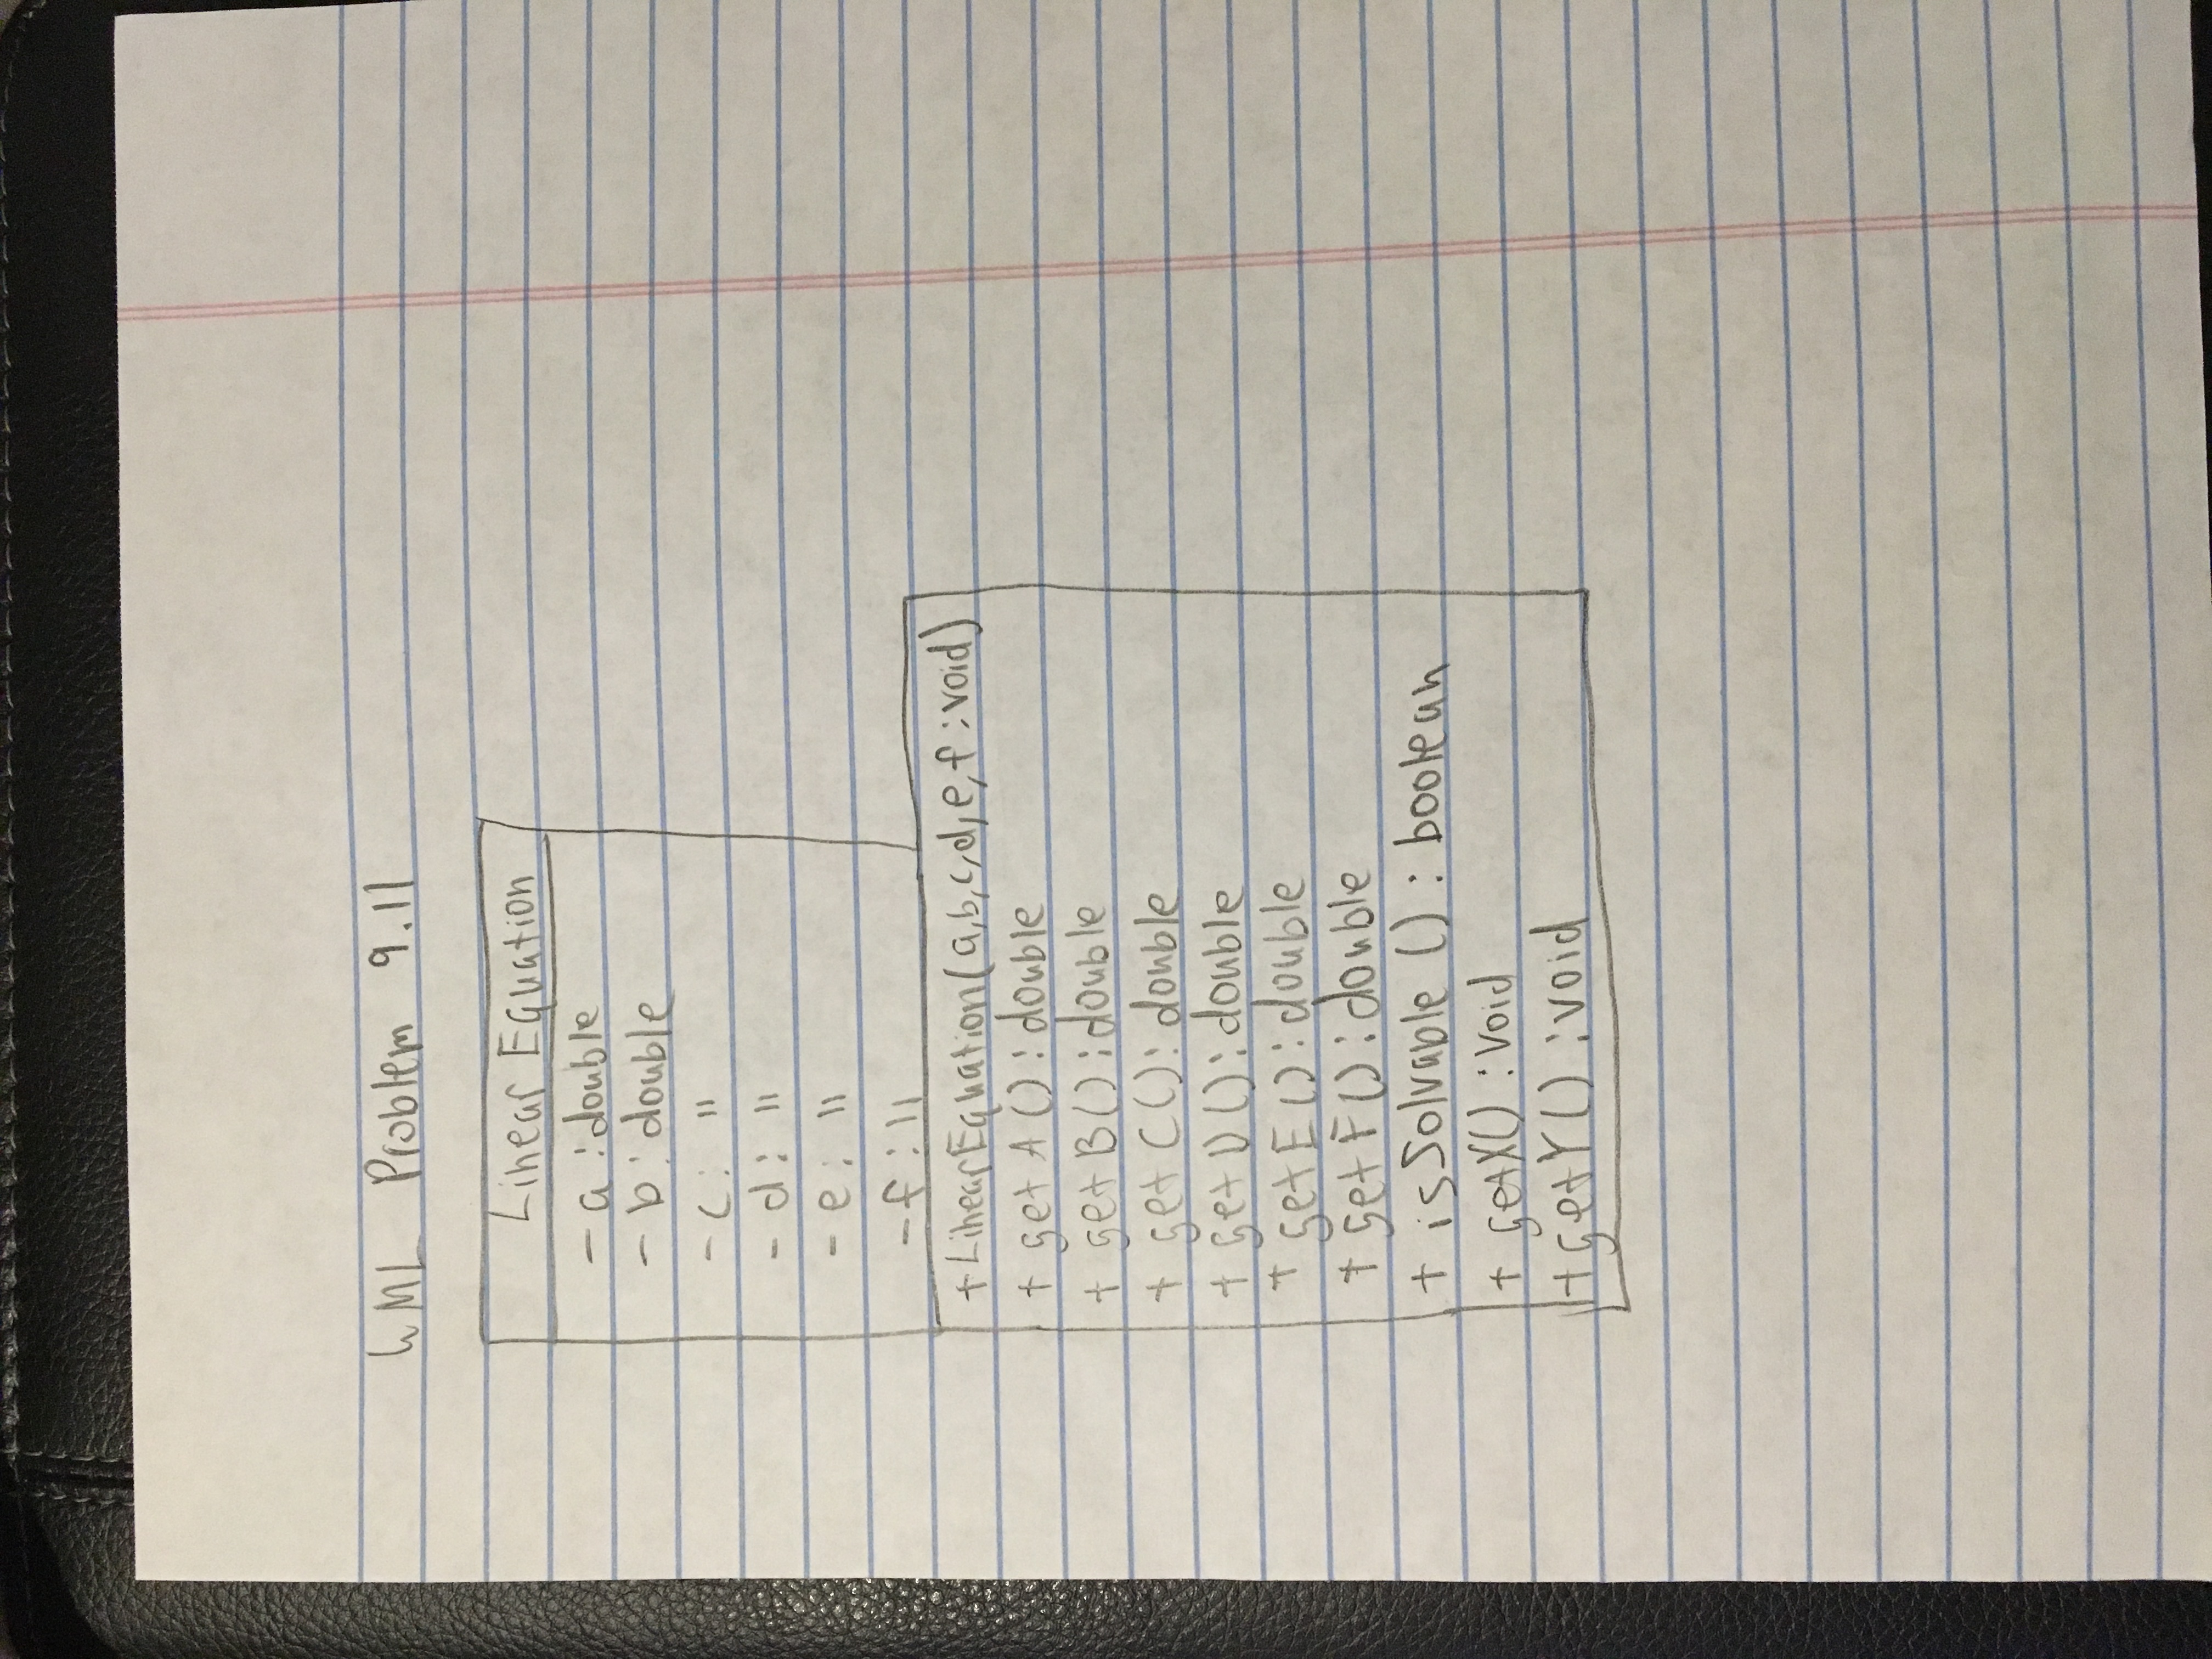 UML Problem 9.11
Linear Equation
- a : double
- b : double
- c : "
- d : "
- e : "
- f : "
+ LinearEquation(a,b,c,d,e,f : void)
+ getA() : double
+ getB() : double
+ getC() : double
+ getD() : double
+ getE() : double
+ getF() : double
+ isSolvable () : boolean
+ getX() : void
+ getY() : void